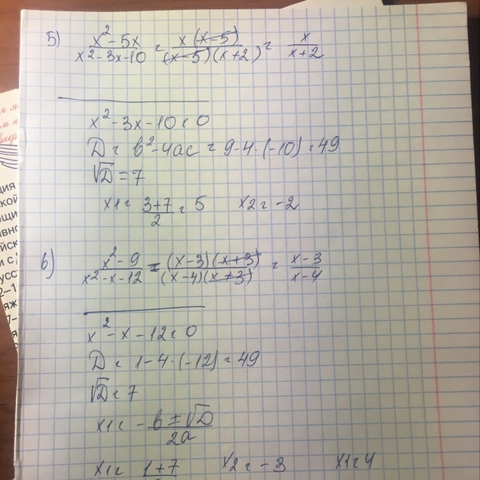 5) x²-5x / x²-3x-10 = x(x-5) / (x-5)(x+2) = x / x+2
x²-3x-10=0
D = b²-4ac = 9-4·(-10)=49
√D=7
x1= 3+7 / 2 = 5 x2=-2
в) x²-9 / x²-x-12 = (x-3)(x+3) / (x-4)(x+3) = x-3 / x-4
x²-x-12=0
D = 1-4·(-12)=49
√D=7
x1= -b±√D / 2a
x1= 1+7 x2=-3 x1=4
ция
кой
ощи
йск
усс
2-1
яж
7-